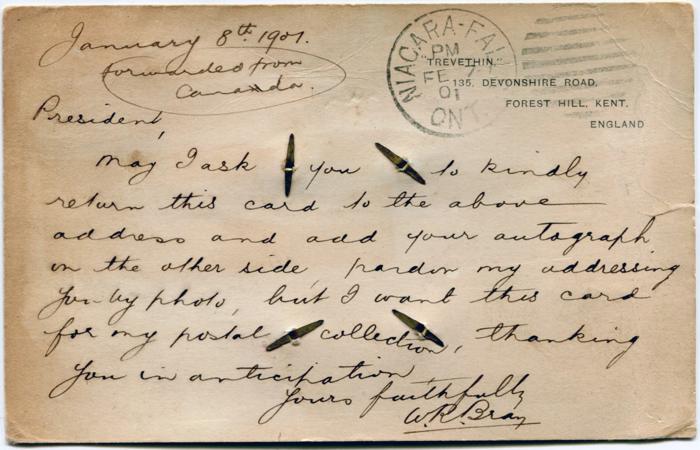 January 8th 1901.
forwarded from
Canada.
NIAGARA-FALLS
PM
FE 7
01
ONT.
"TREVETHIN,"
135, DEVONSHIRE ROAD,
FOREST HILL, KENT.
ENGLAND
President,
May I ask you to kindly
return this card to the above
address and add your autograph
on the other side, pardon my addressing
you by photo, but I want this card
for my postal collection, thanking
you in anticipation
Yours faithfully
W.R. Bray